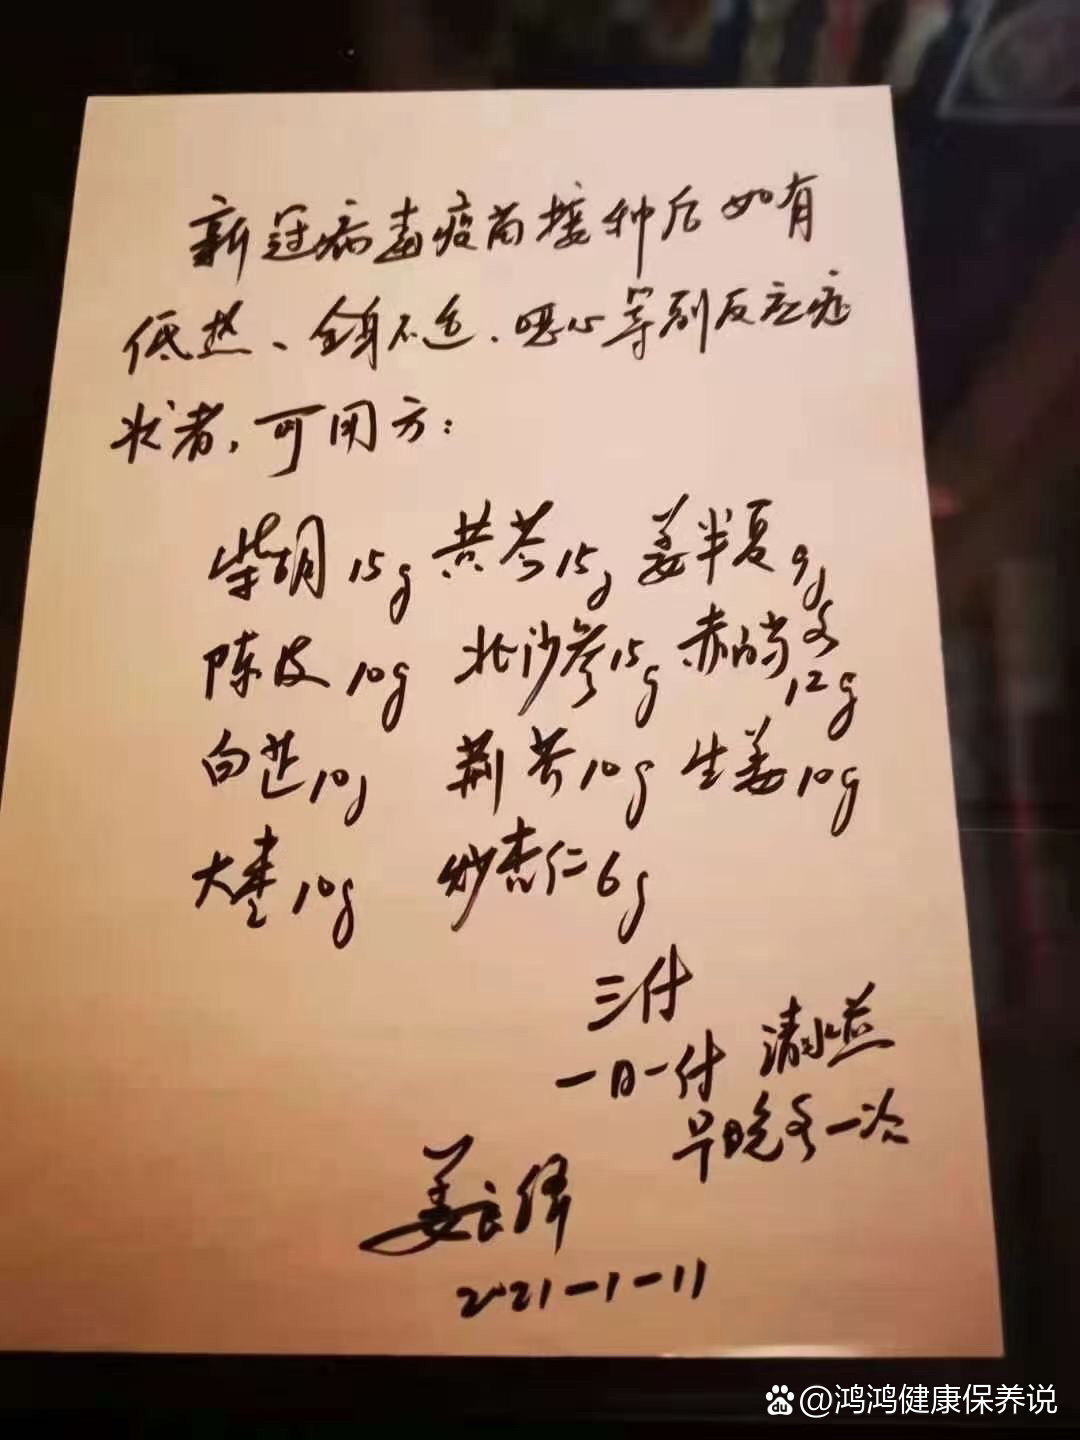 新冠病毒疫苗接种后如有
低热、全身不适、恶心等副反应症
状者，可用方：
柴胡15g 黄芩15g 姜半夏9g
陈皮10g 北沙参15g 赤白芍各12g
白芷10g 荆芥10g 生姜10g
大枣10g 炒杏仁6g
三付
一日一付 清水煎
早晚各一次
姜良铎
2021-1-11
@鸿鸿健康保养说